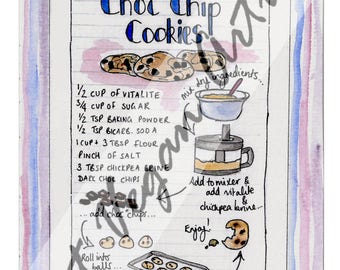 Choc Chip
Cookies
mix dry ingredients...
1/2 CUP OF VITALITE
3/4 CUP OF SUGAR
1/2 TSP BAKING POWDER
1/2 TSP BICARB. SODA
1 CUP + 3 TBSP FLOUR
PINCH OF SALT
3 TBSP CHICKPEA BRINE
DARK CHOC CHIPS
Add to mixer &
add vitalite
& chickpea brine...
...add choc chips...
Enjoy!
Roll into
balls...